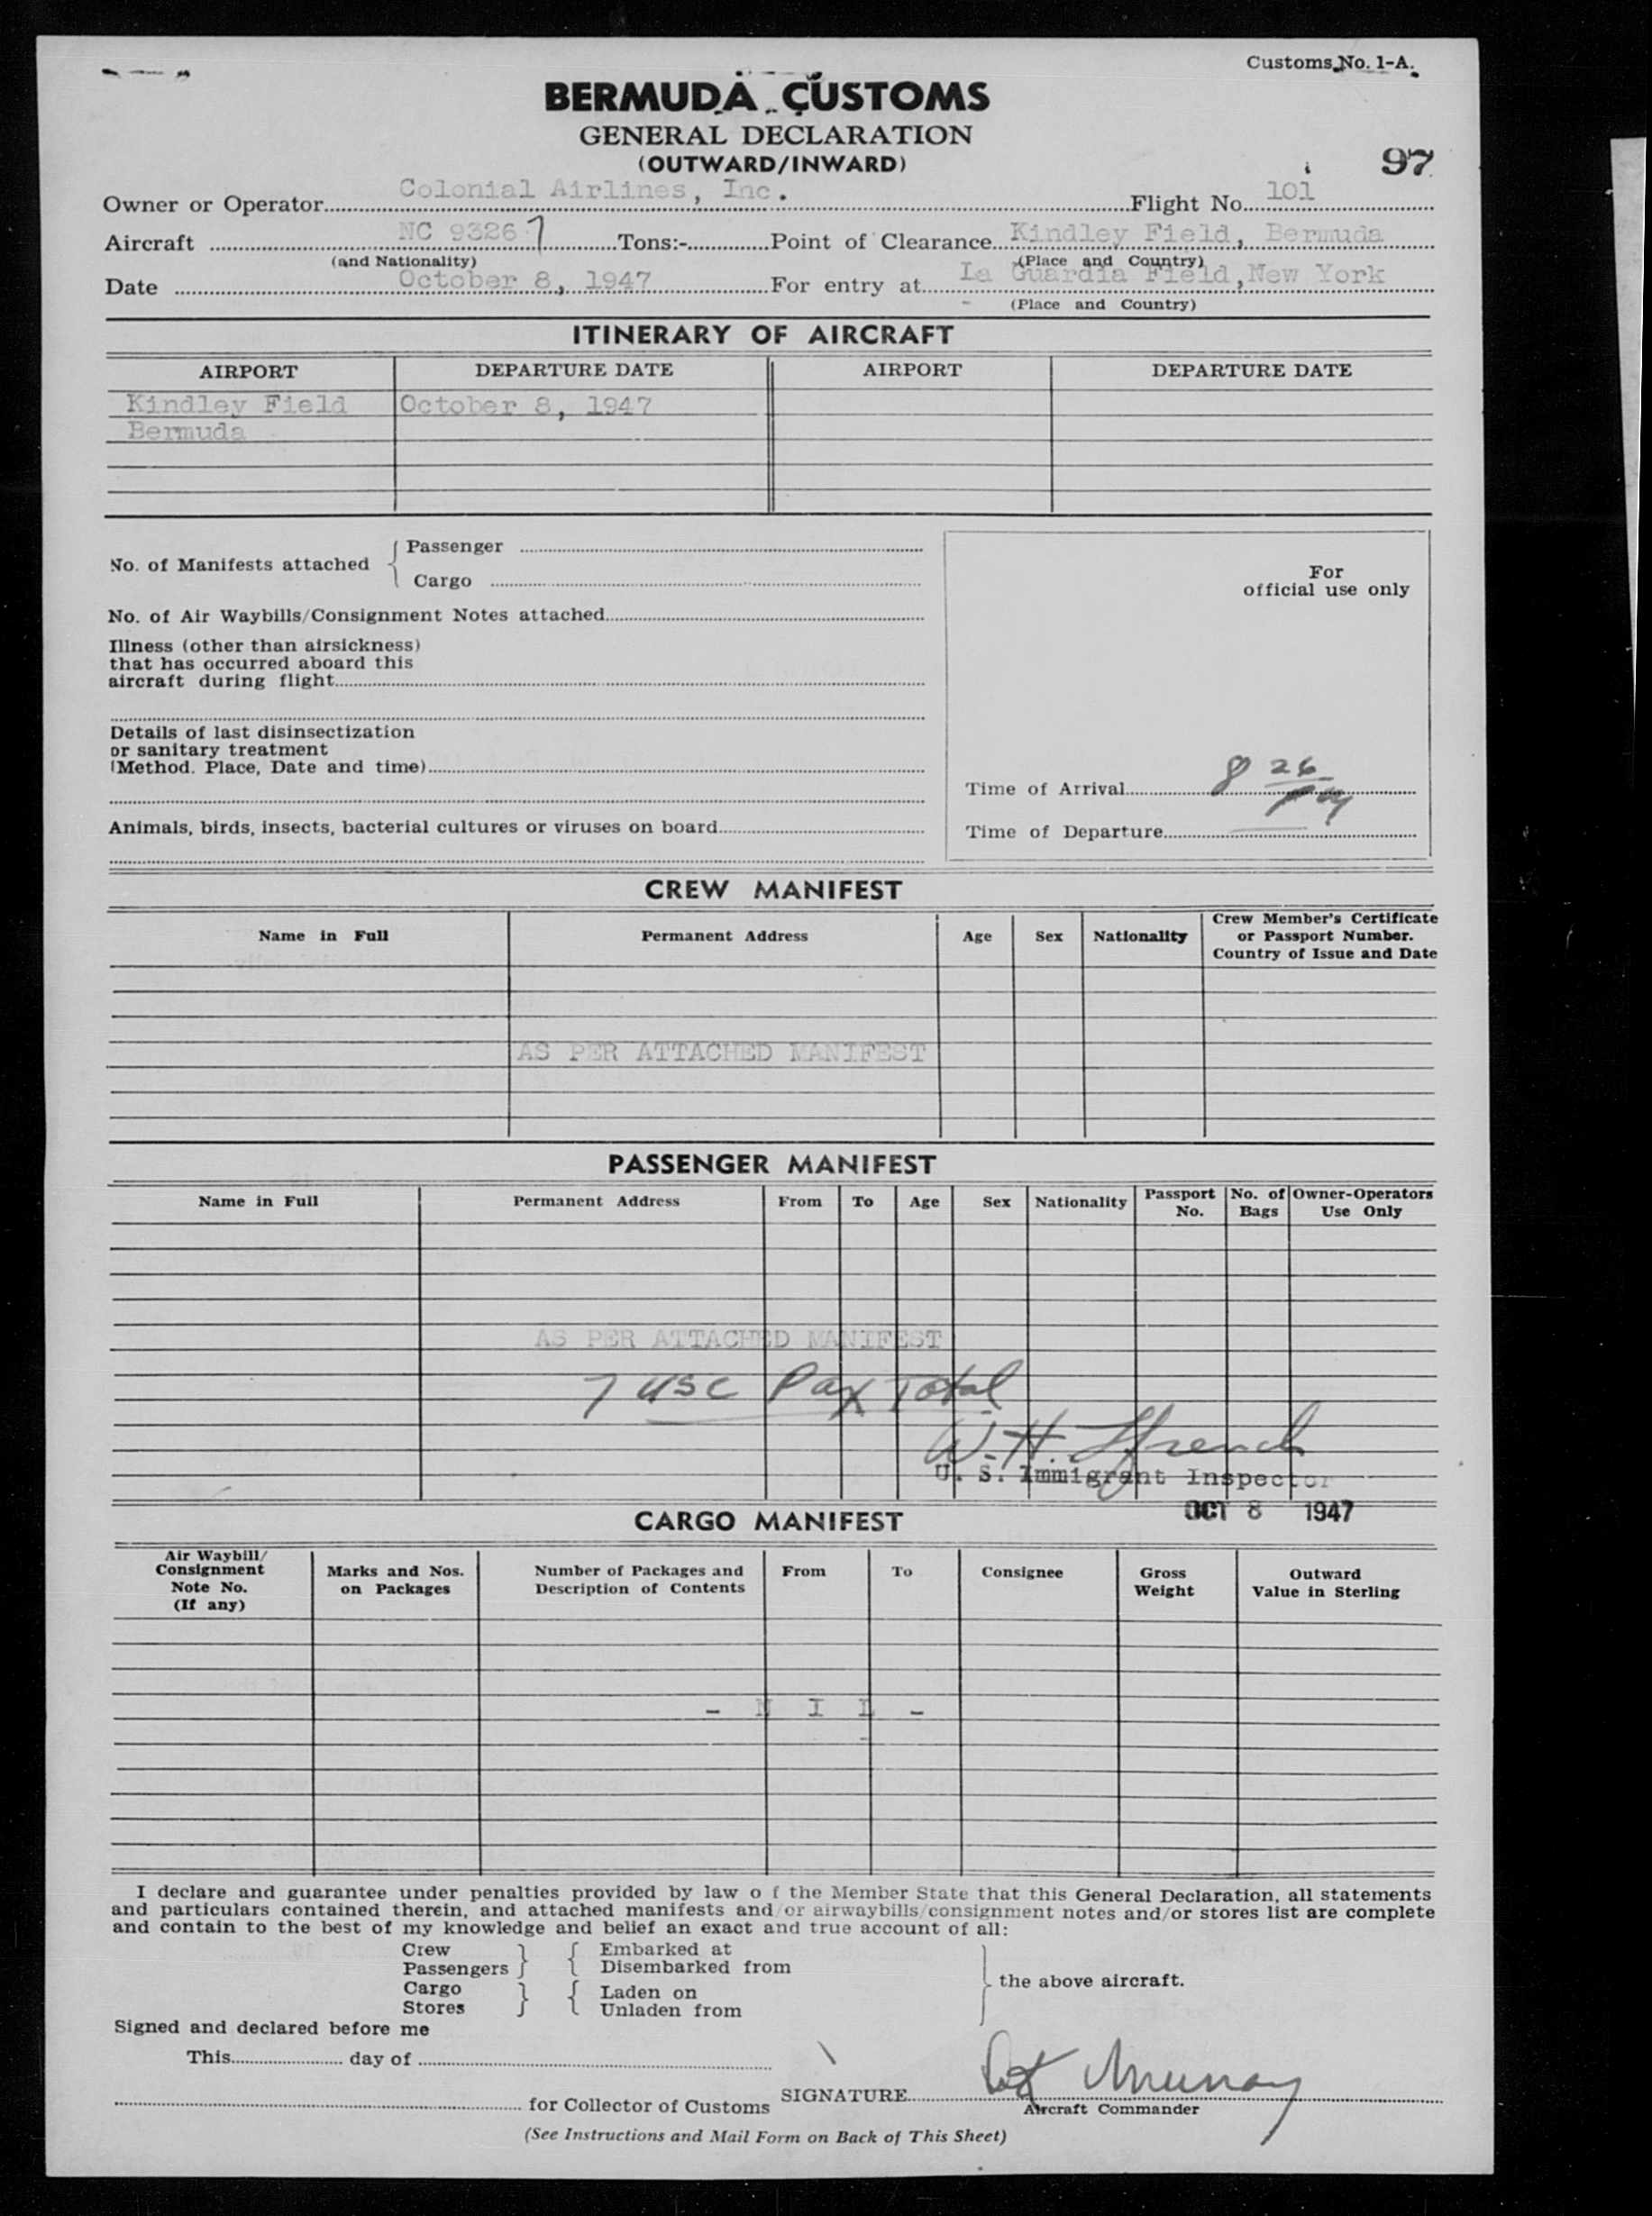 Customs No. 1-A.
BERMUDA CUSTOMS
GENERAL DECLARATION
(OUTWARD/INWARD)
97
Owner or Operator Colonial Airlines, Inc. Flight No. 101
Aircraft NC 93267 Tons:- Point of Clearance Kindley Field, Bermuda
(and Nationality) (Place and Country)
Date October 8, 1947 For entry at La Guardia Field, New York
(Place and Country)
ITINERARY OF AIRCRAFT
AIRPORT DEPARTURE DATE AIRPORT DEPARTURE DATE
Kindley Field October 8, 1947
Bermuda
No. of Manifests attached { Passenger
Cargo
For
official use only
No. of Air Waybills/Consignment Notes attached
Illness (other than airsickness)
that has occurred aboard this
aircraft during flight
Details of last disinsectization
or sanitary treatment
(Method. Place, Date and time)
Time of Arrival 8 26
Animals, birds, insects, bacterial cultures or viruses on board
Time of Departure
CREW MANIFEST
Name in Full Permanent Address Age Sex Nationality Crew Member's Certificate or Passport Number. Country of Issue and Date
AS PER ATTACHED MANIFEST
PASSENGER MANIFEST
Name in Full Permanent Address From To Age Sex Nationality Passport No. No. of Bags Owner-Operators Use Only
AS PER ATTACHED MANIFEST
7 USC Pax Total
W. H. Ffrench
U. S. Immigrant Inspector
OCT 8 1947
CARGO MANIFEST
Air Waybill/ Consignment Note No. (If any) Marks and Nos. on Packages Number of Packages and Description of Contents From To Consignee Gross Weight Outward Value in Sterling
- N I L -
I declare and guarantee under penalties provided by law o f the Member State that this General Declaration, all statements
and particulars contained therein, and attached manifests and/or airwaybills/consignment notes and/or stores list are complete
and contain to the best of my knowledge and belief an exact and true account of all:
Crew } { Embarked at
Passengers } { Disembarked from
} the above aircraft.
Cargo } { Laden on
Stores } { Unladen from
Signed and declared before me
This day of
SIGNATURE Murray
for Collector of Customs
Aircraft Commander
(See Instructions and Mail Form on Back of This Sheet)